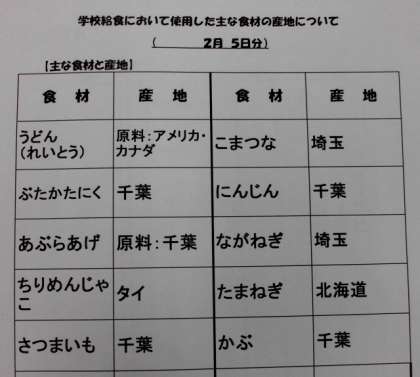 学校給食において使用した主な食材の産地について
(　　　2月 5日分)
【主な食材と産地】
食　材　産　地　食　材　産　地
うどん
(れいとう)
原料:アメリカ・
カナダ
こまつな
埼玉
ぶたかたにく
千葉
にんじん
千葉
あぶらあげ
原料:千葉
ながねぎ
埼玉
ちりめんじゃ
こ
タイ
たまねぎ
北海道
さつまいも
千葉
かぶ
千葉